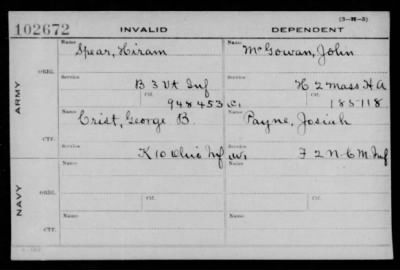 (3-M-5)
102672 INVALID DEPENDENT
Name Spear, Hiram Name McGowan, John
ARMY
ORIG.
Service B 3 Vt Inf Service H 2 Mass H A
Ctf. 948453 Ctf. 185118
Name Crist, George B. Name Payne, Josiah
CTF.
Service K 10 Ohio Inf Service F 2 N-C M. Inf
NAVY
Name Name
ORIG.
Name Name
CTF.